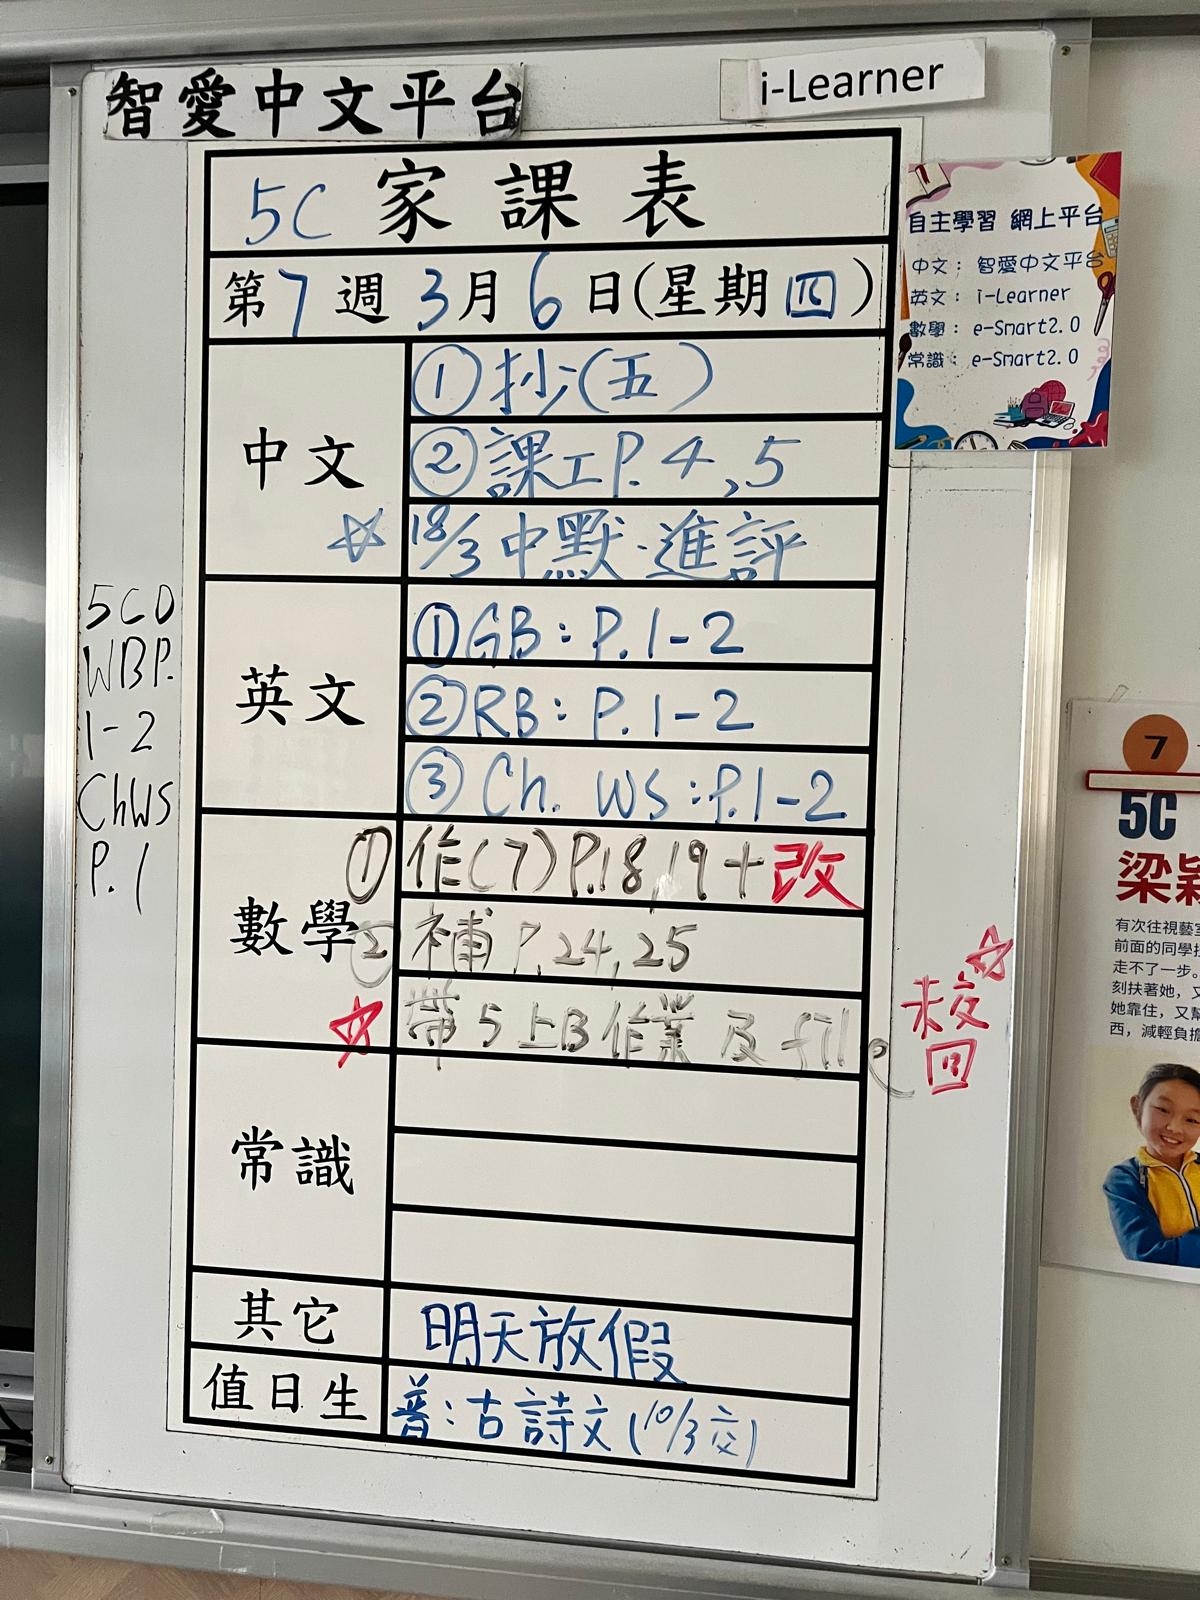 智愛中文平台
i-Learner
5C 家課表
第7週 3月6日(星期四)
中文
①抄(五)
②課工P.4,5
☆ 18/3 中默·進評
英文
①GB: P.1-2
②RB: P.1-2
③Ch. WS: P.1-2
數學
①作(7)P.18,19+改
②補P.24,25
☆ 帶5上B作業及file
常識
其它
明天放假
值日生
普:古詩文(10/3交)
5CD
WBP.
1-2
ChWS
P.1
自主學習 網上平台
中文: 智愛中文平台
英文: i-Learner
數學: e-Smart2.0
常識: e-Smart2.0
☆
未交
回
7
5C
梁穎
有次往視藝室
前面的同學
走不了一步。
刻扶著她,又
她靠住,又幫
西,減輕負擔